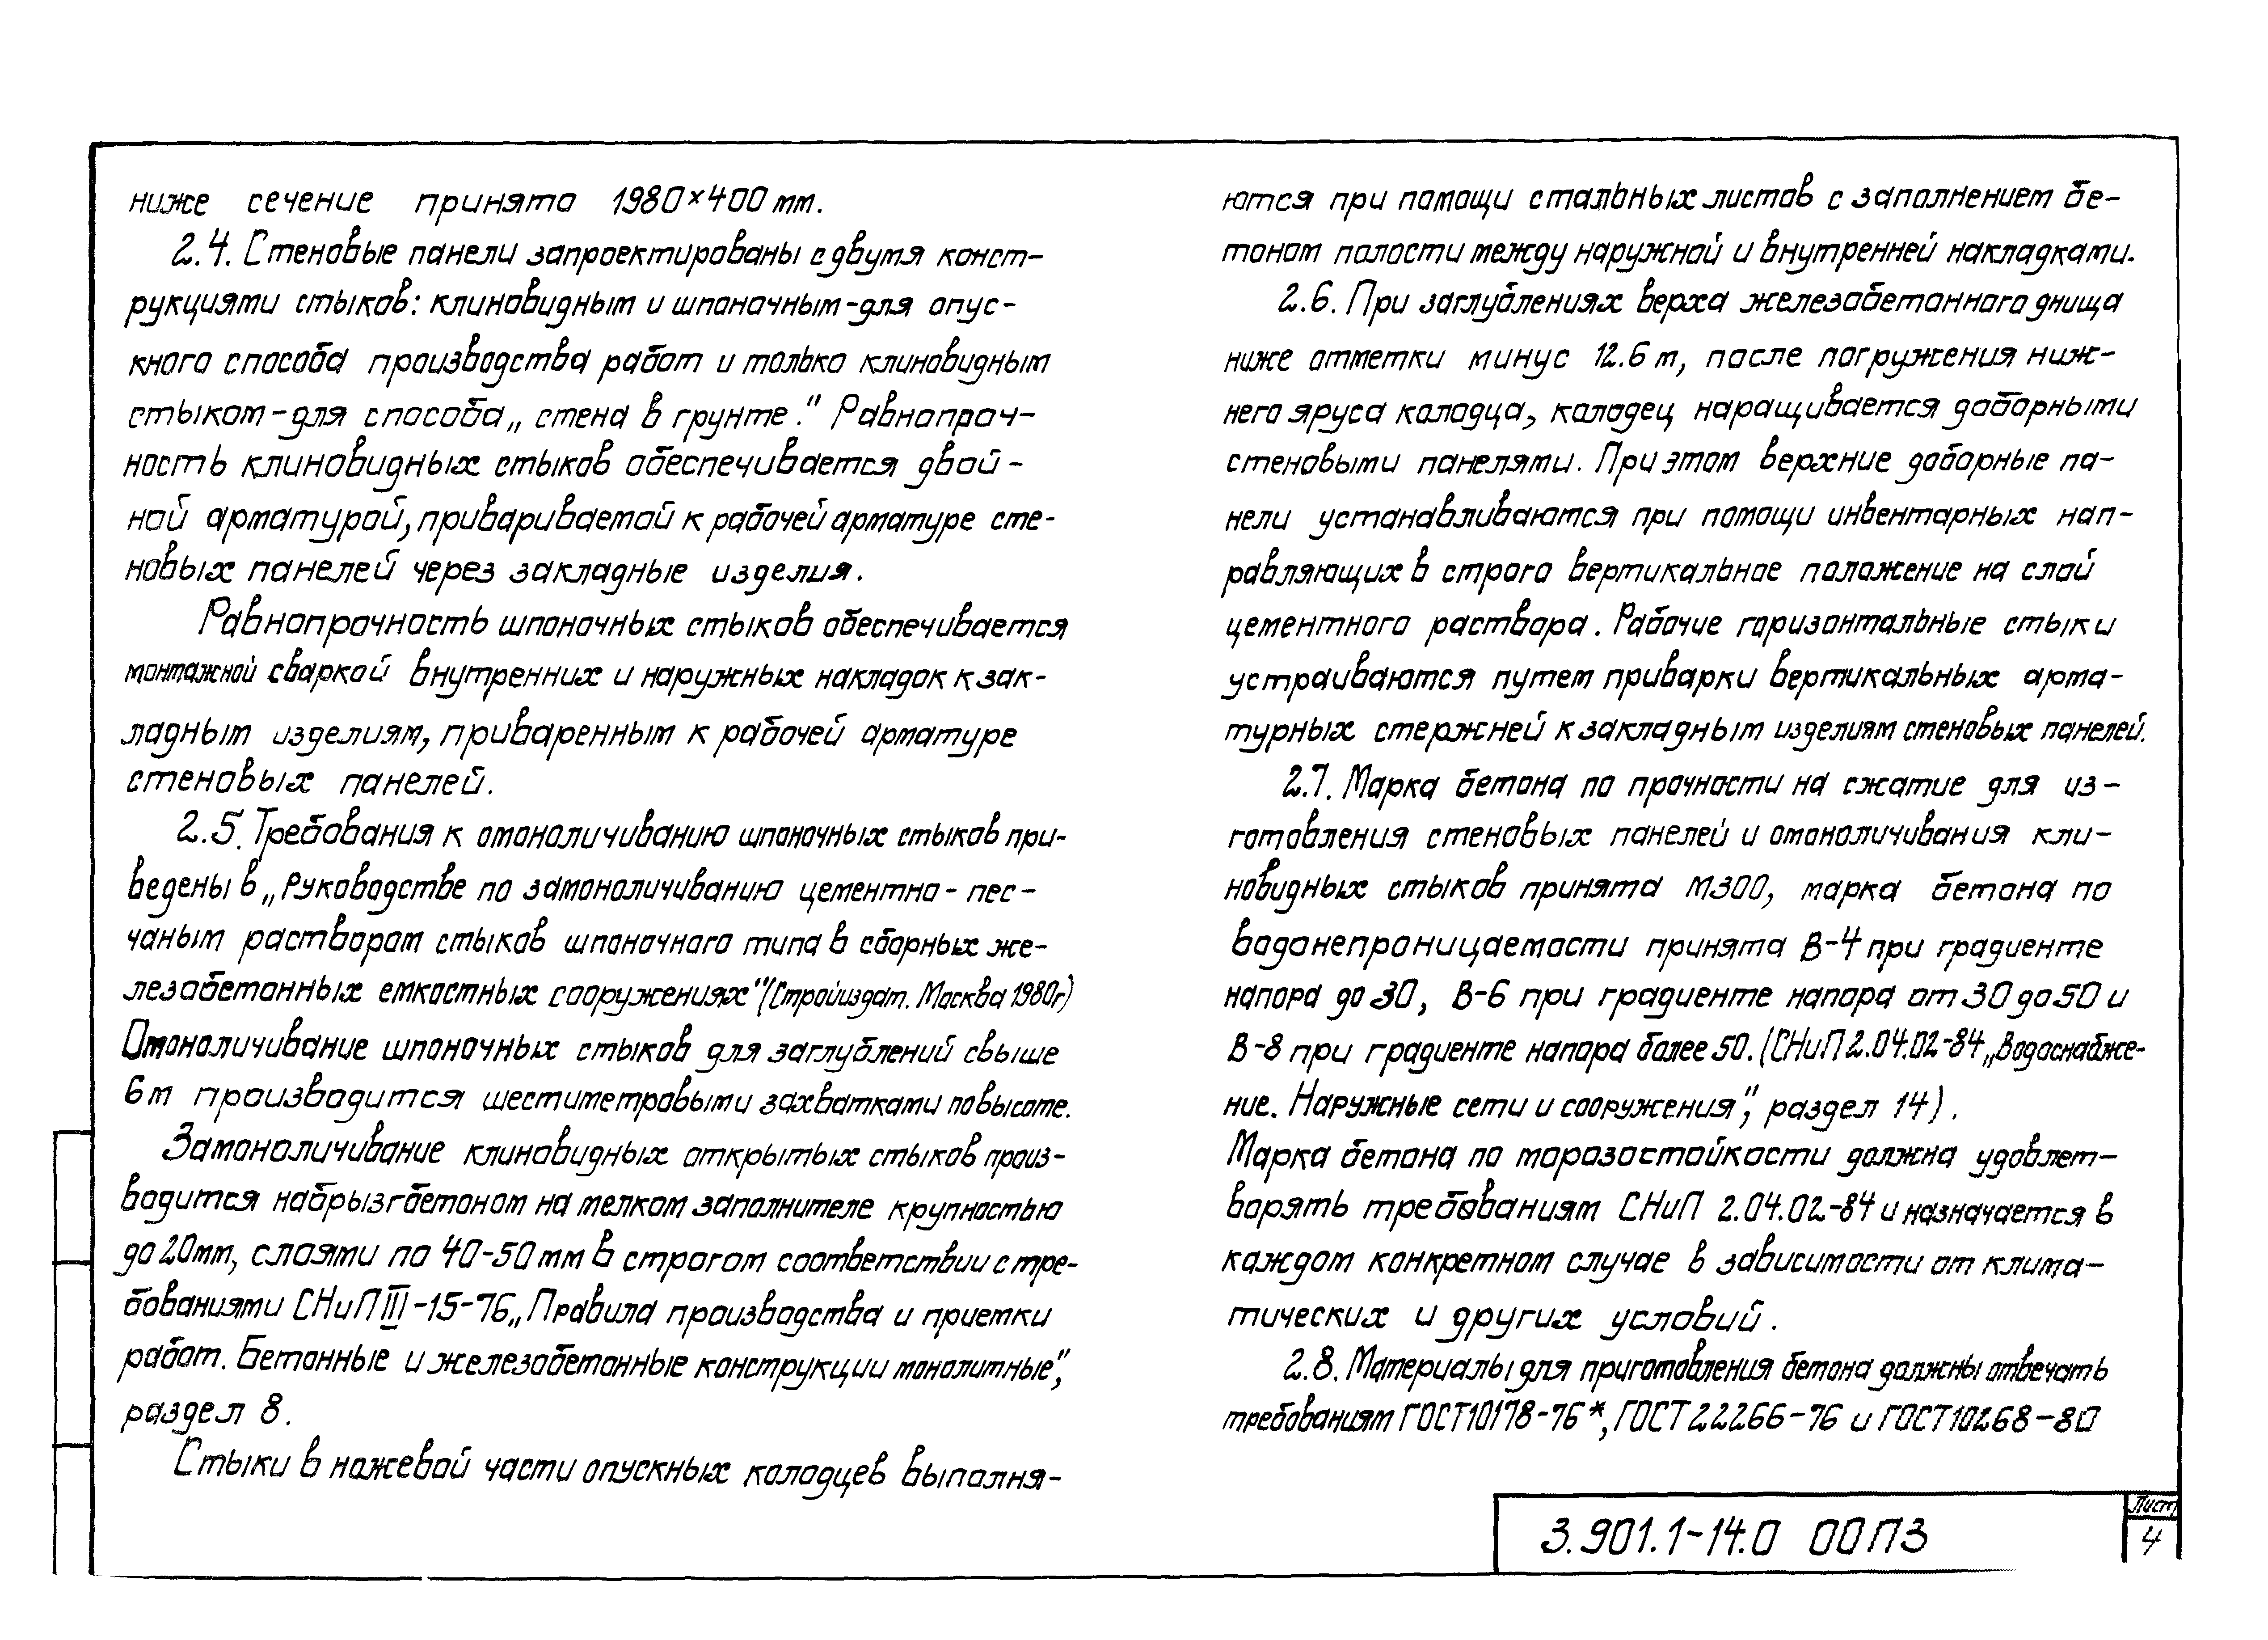 ниже сечение принято 1980×400 мм.
2.4. Стеновые панели запроектированы с двумя конст-
рукциями стыков: клиновидным и шпоночным - для опус-
кного способа производства работ и только клиновидным
стыком - для способа „стена в грунте." Равнопроч-
ность клиновидных стыков обеспечивается двой-
ной арматурой, привариваемой к рабочей арматуре сте-
новых панелей через закладные изделия.
Равнопрочность шпоночных стыков обеспечивается
монтажной сваркой внутренних и наружных накладок к зак-
ладным изделиям, приваренным к рабочей арматуре
стеновых панелей.
2.5. Требования к омоноличиванию шпоночных стыков при-
ведены в „Руководстве по замоноличиванию цементно-пес-
чаным раствором стыков шпоночного типа в сборных же-
лезобетонных емкостных сооружениях" (Стройиздат. Москва 1980г)
Омоноличивание шпоночных стыков для заглублений свыше
6м производится шестиметровыми захватками по высоте.
Замоноличивание клиновидных открытых стыков произ-
водится набрызгбетоном на мелком заполнителе крупностью
до 20мм, слоями по 40-50 мм в строгом соответствии с тре-
бованиями СНиП III-15-76 „Правила производства и приемки
работ. Бетонные и железобетонные конструкции монолитные",
раздел 8.
Стыки в ножевой части опускных колодцев выполня-
ются при помощи стальных листов с заполнением бе-
тоном полости между наружной и внутренней накладками.
2.6. При заглублениях верха железобетонного днища
ниже отметки минус 12.6 м, после погружения ниж-
него яруса колодца, колодец наращивается доборными
стеновыми панелями. При этом верхние доборные па-
нели устанавливаются при помощи инвентарных нап-
равляющих в строго вертикальное положение на слой
цементного раствора. Рабочие горизонтальные стыки
устраиваются путем приварки вертикальных арма-
турных стержней к закладным изделиям стеновых панелей.
2.7. Марка бетона по прочности на сжатие для из-
готовления стеновых панелей и омоноличивания кли-
новидных стыков принята М300, марка бетона по
водонепроницаемости принята В-4 при градиенте
напора до 30, В-6 при градиенте напора от 30 до 50 и
В-8 при градиенте напора более 50. (СНиП 2.04.02-84 „Водоснабже-
ние. Наружные сети и сооружения", раздел 14).
Марка бетона по морозостойкости должна удовлет-
ворять требованиям СНиП 2.04.02-84 и назначается в
каждом конкретном случае в зависимости от клима-
тических и других условий.
2.8. Материалы для приготовления бетона должны отвечать
требованиям ГОСТ10178-76*, ГОСТ 22266-76 и ГОСТ10268-80
3.901.1-14.0 00ПЗ
Лист
4